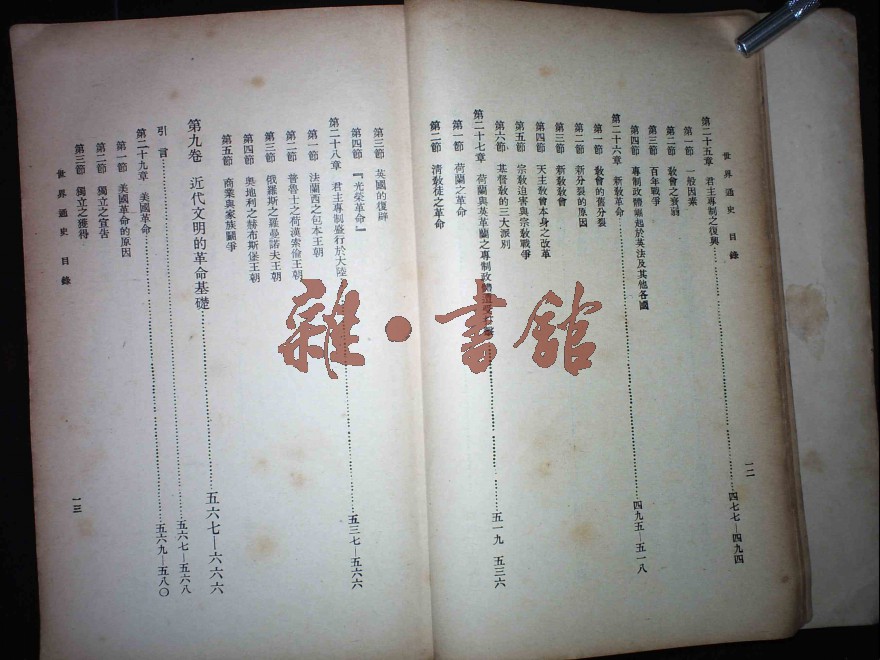 世界通史 目錄
第二十五章 君主專制之復興……四七七—四九四
第一節 一般因素
第二節 教會之衰弱
第三節 百年戰爭
第四節 專制政體崛起於英法及其他各國
第二十六章 新教革命……四九五—五一八
第一節 教會的舊分裂
第二節 新分裂的原因
第三節 新教教會
第四節 天主教會本身之改革
第五節 宗教迫害與宗教戰爭
第六節 基督教的三大派別
第二十七章 荷蘭與英革蘭之專制政體……五一九 五三六
第一節 荷蘭之革命
第二節 清教徒之革命
一二
第三節 英國的復辟
第四節 『光榮革命』
第二十八章 君主專制盛行於大陸……五三七—五六六
第一節 法蘭西之包本王朝
第二節 普魯士之荷漢索倫王朝
第三節 俄羅斯之羅曼諾夫王朝
第四節 奧地利之赫布斯堡王朝
第五節 商業與家族鬭爭
第九卷 近代文明的革命基礎……五六七—六六六
引言……五六七—五六八
第二十九章 美國革命……五六九—五八〇
第一節 美國革命的原因
第二節 獨立之宣告
第三節 獨立之獲得
世界通史 目錄
一三
雜·書館